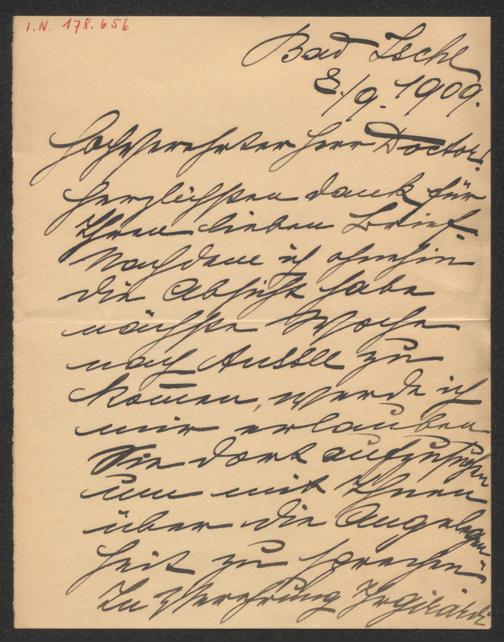 I.N. 178.656
Bad Ischl
8./9. 1909.
Hochverehrter Herr Doctor!
Herzlichsten Dank für
Ihren lieben Brief.
Nachdem ich ohnehin
die Absicht habe
nächste Woche
nach Aussee zu
kom̄en, werde ich
mir erlauben
Sie dort aufzusuchen
um mit Ihnen
über die Angelegen-
heit zu sprechen.
In Verehrung Ihr Girardi